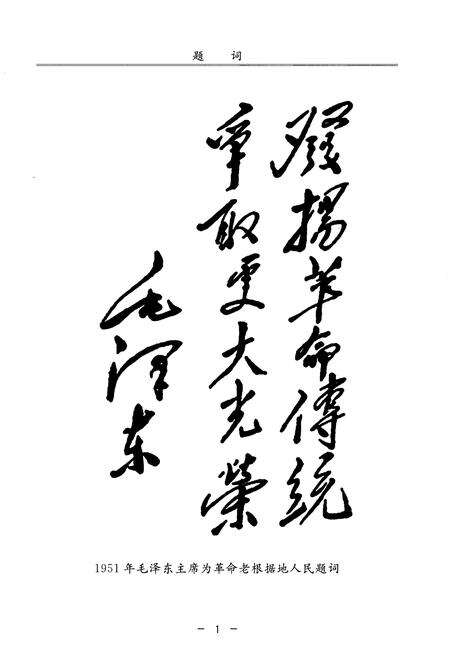 题 词
發揚革命傳統
爭取更大光榮
毛泽东
1951年毛泽东主席为革命老根据地人民题词
- 1 -